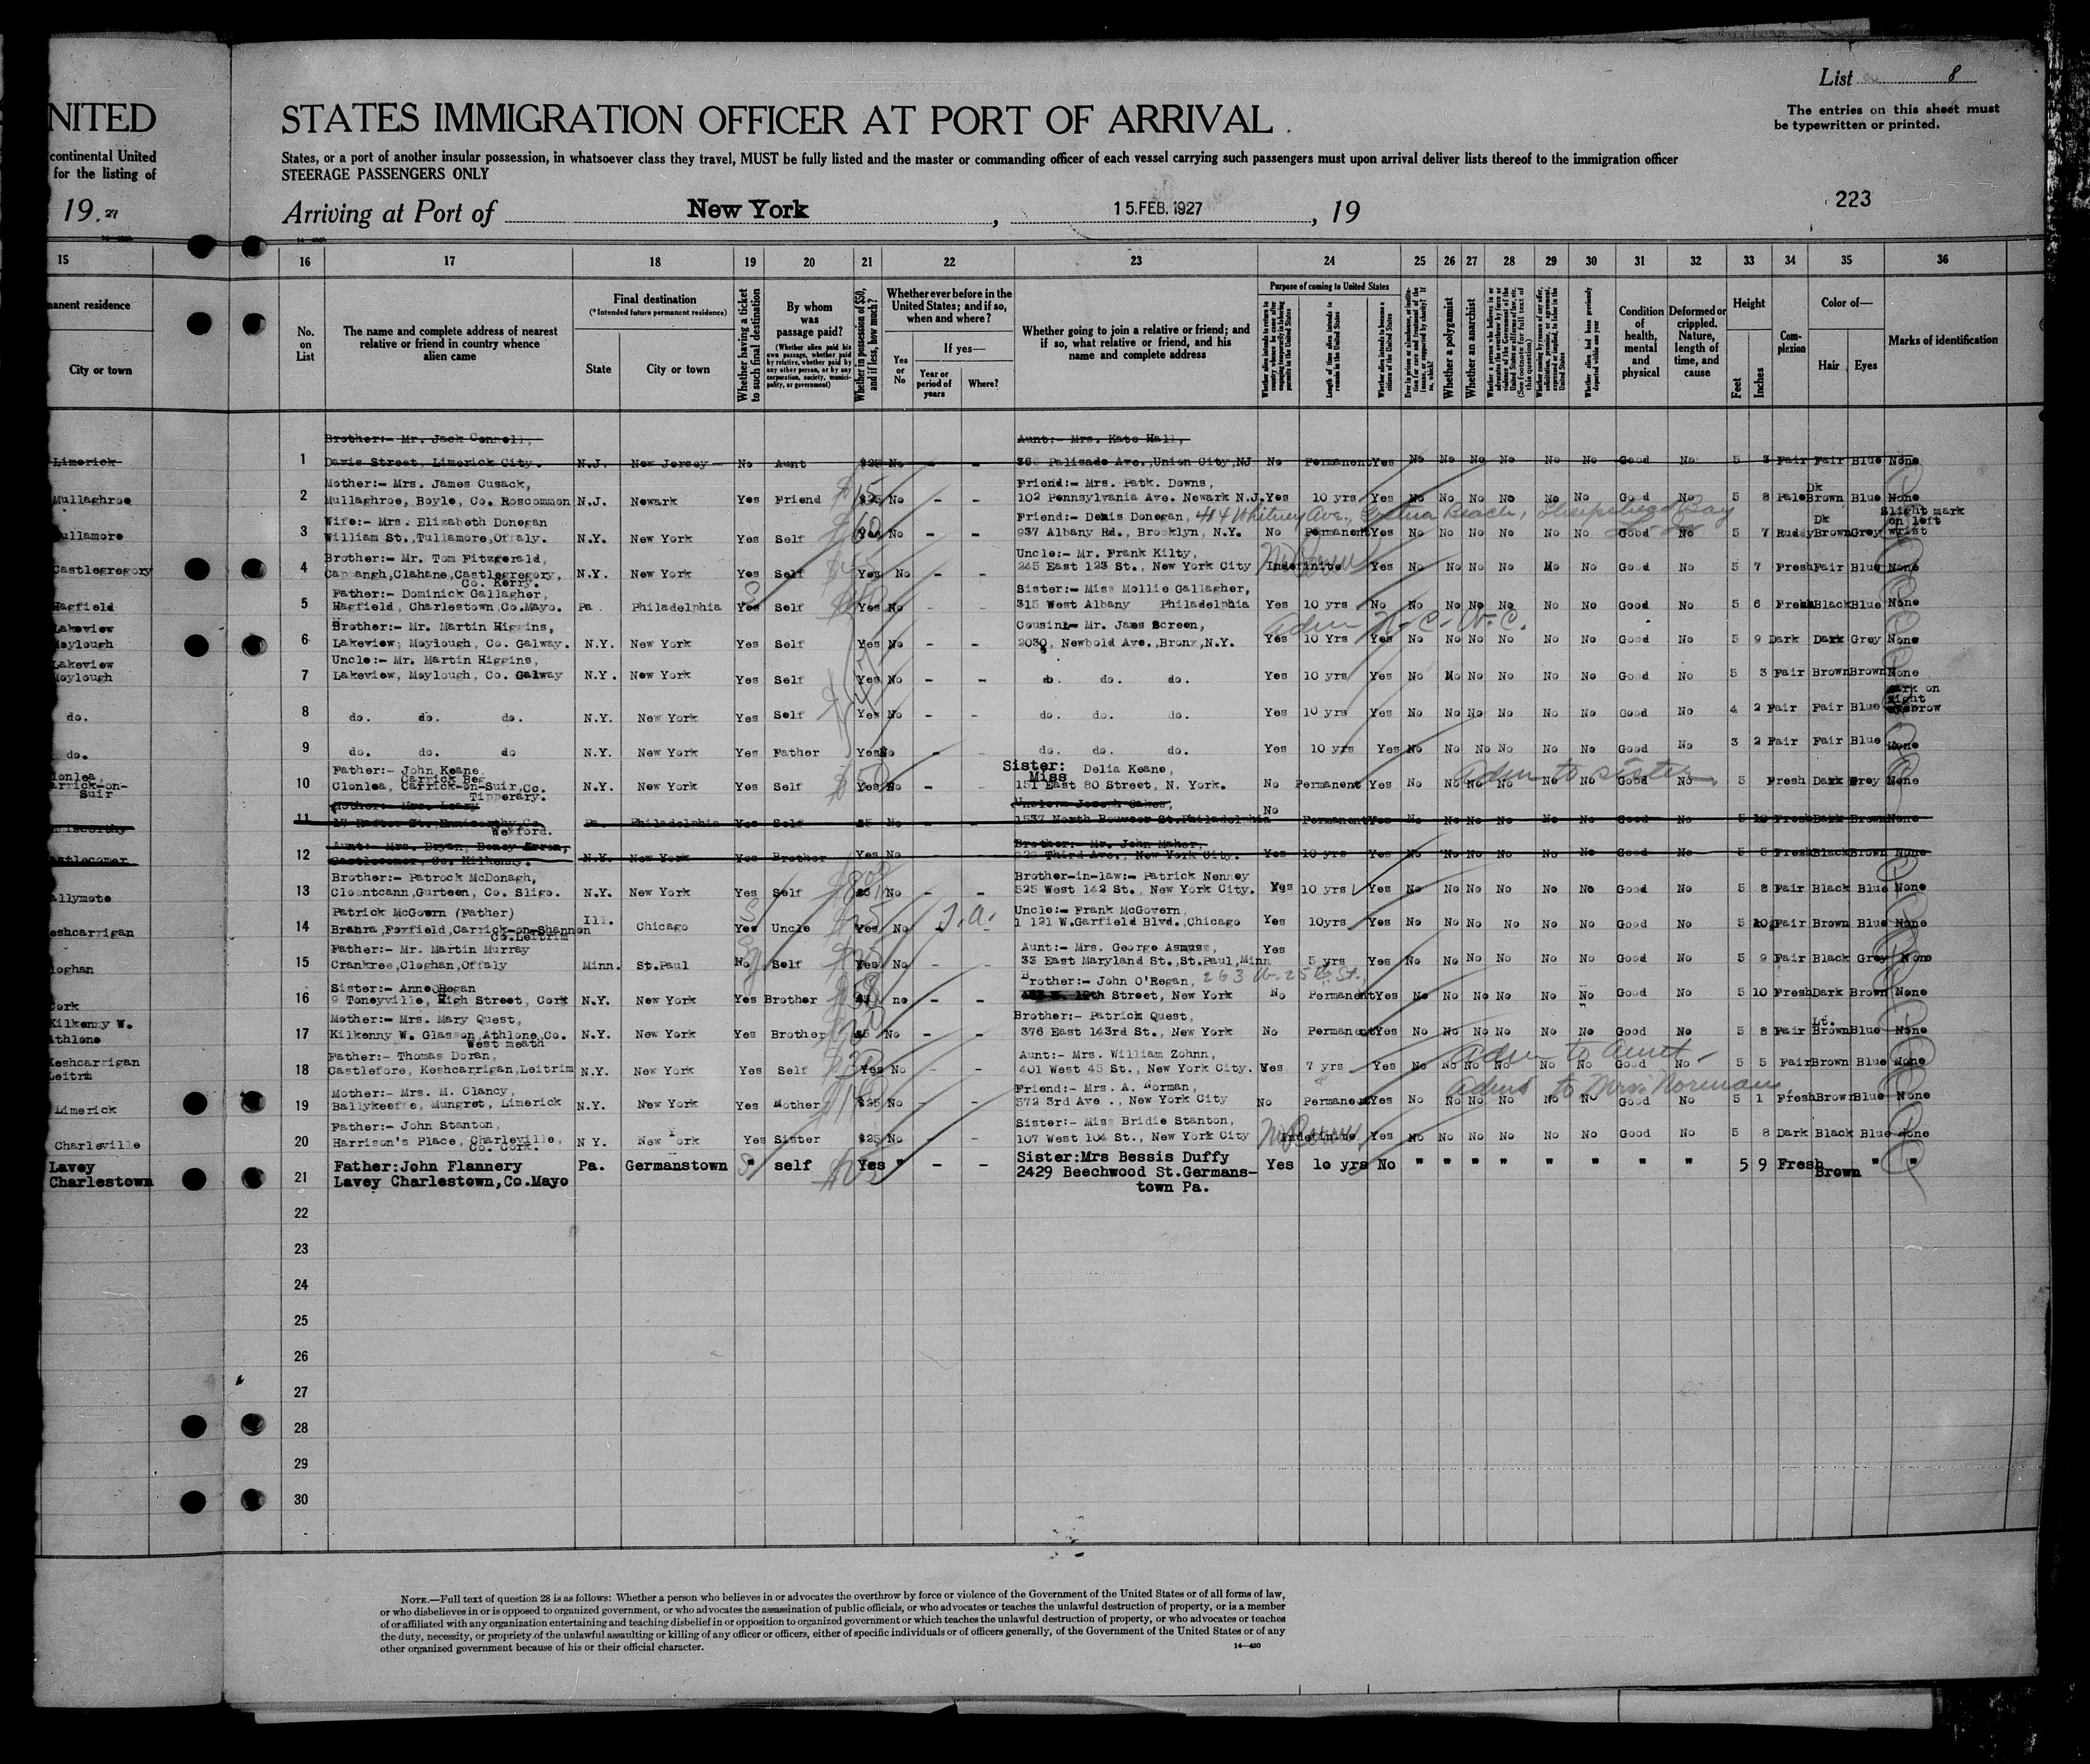 List 8
The entries on this sheet must
be typewritten or printed.
NITED
STATES IMMIGRATION OFFICER AT PORT OF ARRIVAL
continental United
for the listing of
States, or a port of another insular possession, in whatsoever class they travel, MUST be fully listed and the master or commanding officer of each vessel carrying such passengers must upon arrival deliver lists thereof to the immigration officer
STEERAGE PASSENGERS ONLY
19.27
Arriving at Port of New York, 15.FEB.1927, 19
223
15 16 17 18 19 20 21 22 23 24 25 26 27 28 29 30 31 32 33 34 35 36
manent residence
City or town
No. on List
The name and complete address of nearest relative or friend in country whence alien came
Final destination
(*Intended future permanent residence)
State
City or town
Whether having a ticket to such final destination
By whom was passage paid?
(Whether alien paid his own passage, whether paid by relative, whether paid by any other person, or by any corporation, society, municipality, or government)
Whether in possession of $50, and if less, how much?
Whether ever before in the United States; and if so, when and where?
Yes or No
If yes—
Year or period of years
Where?
Whether going to join a relative or friend; and if so, what relative or friend, and his name and complete address
Purpose of coming to United States
Length of time alien intends to remain in the United States
Whether alien intends to become a citizen of the United States
Whether a polygamist
Whether an anarchist
Condition of health, mental and physical
Deformed or crippled. Nature, length of time, and cause
Height
Feet
Inches
Complexion
Color of—
Hair
Eyes
Marks of identification
Brother:- Mr. Jack Connell, Aunt:- Mrs. Kate Hall,
Limerick 1 Davis Street, Limerick City. N.J. New Jersey No Aunt $25 No - - 36 Palisade Ave., Union City, NJ No Permanent Yes No No No No No No Good No 5 3 Fair Fair Blue None
Mother:- Mrs. James Cusack, Friend:- Mrs. Patk. Downs, Dk
Mullaghroe 2 Mullaghroe, Boyle, Co. Roscommon N.J. Newark Yes Friend $25 No - - 102 Pennsylvania Ave. Newark N.J. Yes 10 yrs Yes No No No No No No Good No 5 8 Pale Brown Blue None
Wife:- Mrs. Elizabeth Donegan Friend:- Denis Donegan, 414 Whitney Ave., Beach, Bay Dk Slight mark on left wrist
Tullamore 3 William St., Tullamore, Offaly. N.Y. New York Yes Self Yes No - - 937 Albany Rd., Brooklyn, N.Y. No Permanent Yes No No No No No No Good No 5 7 Ruddy Brown Grey
Brother:- Mr. Tom Fitzgerald, Uncle:- Mr. Frank Kilty,
Castlegregory 4 Capmangh, Clahane, Castlegregory, Co. Kerry. N.Y. New York Yes Self Yes No - - 245 East 123 St., New York City Indefinite Yes No No No No No No Good No 5 7 Fresh Fair Blue None
Father:- Dominick Gallagher, Sister:- Miss Mollie Gallagher,
Hagfield 5 Hagfield, Charlestown, Co.Mayo. Pa. Philadelphia Yes Self Yes No - - 315 West Albany Philadelphia Yes 10 yrs No No No No No No No Good No 5 6 Fresh Black Blue None
Brother:- Mr. Martin Higgins, Cousin:- Mr. James Screen,
Lakeview Moylough 6 Lakeview, Moylough, Co. Galway. N.Y. New York Yes Self Yes No - - 2030, Newbold Ave., Bronx, N.Y. Yes 10 Yrs Yes No No No No No No Good No 5 9 Dark Dark Grey None
Uncle:- Mr. Martin Higgins,
Lakeview Moylough 7 Lakeview, Moylough, Co. Galway N.Y. New York Yes Self Yes No - - do. do. do. Yes 10 yrs Yes No No No No No No Good No 5 3 Fair Brown Brown None
do. 8 do. do. do. N.Y. New York Yes Self Yes No - - do. do. do. Yes 10 yrs Yes No No No No No No Good No 4 2 Fair Fair Blue Mark on right eyebrow
do. 9 do. do. do N.Y. New York Yes Father Yes No - - do. do. do. Yes 10 yrs Yes No No No No No No Good No 3 2 Fair Fair Blue None
Father:- John Keane, Sister: Miss Delia Keane, adm to sister
Clonlea, Carrick-on-Suir 10 Clonlea, Carrick Beg Carrick-on-Suir, Co. Tipperary. N.Y. New York Yes Self Yes No 151 East 80 Street, N. York. No Permanent Yes No No No No No No Good No 5 Fresh Dark Grey None
Mother:- Mrs. Leary Uncle:- Joseph Oakes,
11 17 Rafter St. Enniscorthy, Co. Wexford. Pa. Philadelphia Yes Self 25 No 1537 North Bouveer St. Philadelphia No Permanent Yes No No No No No No Good No 5 10 Fresh Dark Brown None
Aunt:- Mrs. Bryan, Brother:- Mr. John Maher,
Castlecomer 12 Castlecomer, Co. Kilkenny. N.Y. New York Yes Brother Yes No Third Ave., New York City. Yes 10 yrs Yes No No No No No No Good No 5 5 Fresh Black Brown None
Brother:- Patrock McDonagh, Brother-in-law:- Patrick Nenney
Ballymote 13 Cloontcann, Gurteen, Co. Sligo. N.Y. New York Yes Self No - - 525 West 142 St., New York City. Yes 10 yrs Yes No No No No No No Good No 5 8 Fair Black Blue None
Patrick McGovern (Father) Uncle:- Frank McGovern,
Keshcarrigan 14 Branra, Foxfield, Carrick-on-Shannon Co.Leitrim Ill. Chicago Yes Uncle Yes No - - 1 121 W.Garfield Blvd., Chicago Yes 10yrs Yes No No No No No No Good No 5 10 Fair Brown Blue None
Father:- Mr. Martin Murray Aunt:- Mrs. George Asmuss,
Cloghan 15 Crankree, Cloghan, Offaly Minn. St.Paul No Self Yes No - - 33 East Maryland St., St.Paul, Minn Yes 5 yrs Yes No No No No No No Good No 5 9 Fair Black Grey None
Sister:- Anne ORegan Brother:- John O'Regan, 263 W. 25th St.
Cork 16 9 Toneyville, High Street, Cork N.Y. New York Yes Brother no - - 19th Street, New York No Permanent Yes No No No No No No Good No 5 10 Fresh Dark Brown None
Mother:- Mrs. Mary Quest, Brother:- Patrick Quest, Lt.
Kilkenny W. Athlone 17 Kilkenny W. Glasson, Athlone, Co. West meath N.Y. New York Yes Brother No - - 376 East 143rd St., New York No Permanent Yes No No No No No No Good No 5 8 Fair Brown Blue None
Father:- Thomas Doran, Aunt:- Mrs. William Zohnn, adm to aunt
Keshcarrigan Leitrm 18 Castlefore, Keshcarrigan, Leitrim N.Y. New York Yes Self Yes No - - 401 West 45 St., New York City. Yes 7 yrs Yes No No No No No No Good No 5 5 Fair Brown Blue None
Mother:- Mrs. M. Clancy, Friend:- Mrs. A. Norman, adm to Mrs. Norman
Limerick 19 Ballykeeffe, Mungret, Limerick N.Y. New York Yes Mother $25 No - - 572 3rd Ave ., New York City No Permanent Yes No No No No No No Good No 5 1 Fresh Brown Blue None
Father:- John Stanton, Sister:- Miss Bridie Stanton,
Charleville 20 Harrison's Place, Charleville, Co. Cork. N Y. New York Yes Sister $25 No - - 107 West 104 St., New York City Indefinite Yes No No No No No No Good No 5 8 Dark Black Blue None
Father:John Flannery Sister:Mrs Bessis Duffy
Lavey Charlestown 21 Lavey Charlestown, Co.Mayo Pa. Germanstown " self Yes " - - 2429 Beechwood St.Germans-town Pa. Yes 1o yrs No " " " " " " " " 5 9 Fresh Brown " "
22
23
24
25
26
27
28
29
30
NOTE.—Full text of question 28 is as follows: Whether a person who believes in or advocates the overthrow by force or violence of the Government of the United States or of all forms of law,
or who disbelieves in or is opposed to organized government, or who advocates the assassination of public officials, or who advocates or teaches the unlawful destruction of property, or is a member
of or affiliated with any organization entertaining and teaching disbelief in or opposition to organized government or which teaches the unlawful destruction of property, or who advocates or teaches
the duty, necessity, or propriety of the unlawful assaulting or killing of any officer or officers, either of specific individuals or of officers generally, of the Government of the United States or of any
other organized government because of his or their official character.
14—430